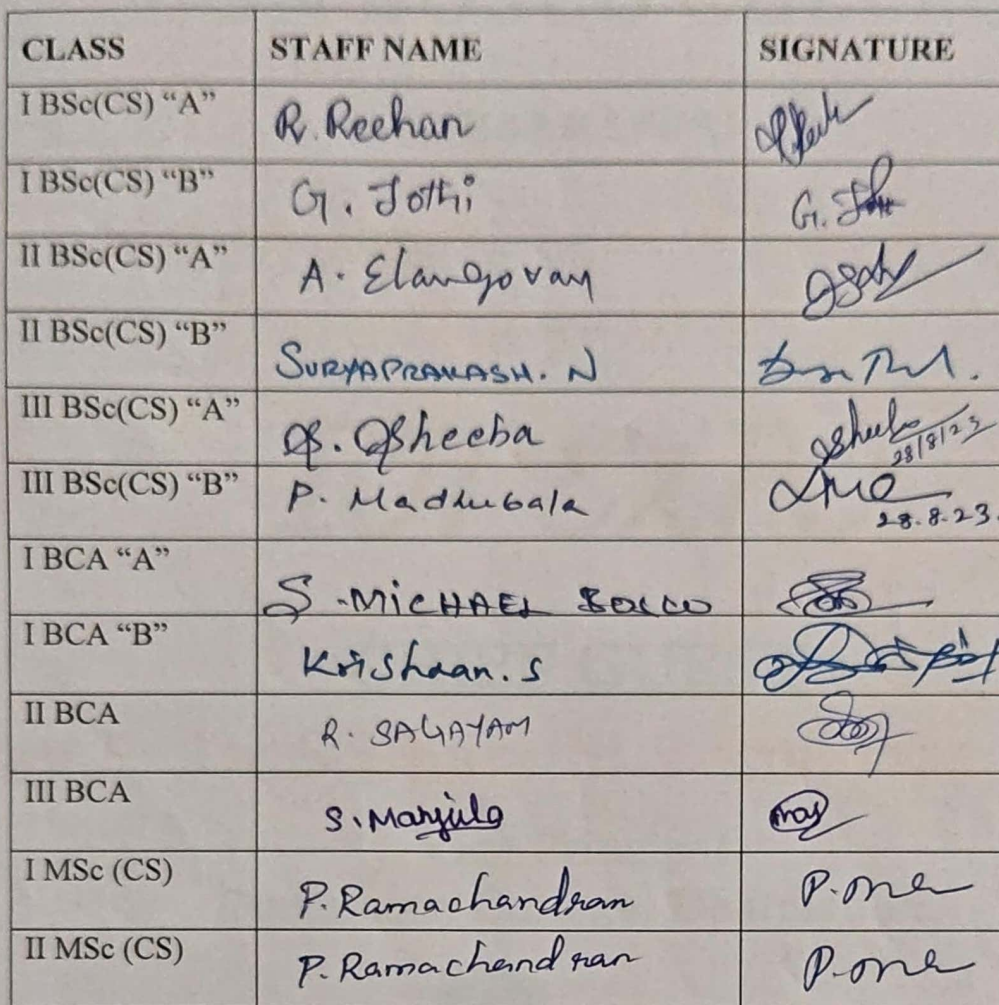 CLASS STAFF NAME SIGNATURE
I BSc(CS) “A” R. Reehan
I BSc(CS) “B” G. Jothi G.
II BSc(CS) “A” A. Elangovan
II BSc(CS) “B” SURYAPRAKASH. N
III BSc(CS) “A” S. Sheeba Sheeba
28/8/23
III BSc(CS) “B” P. Madhubala
28.8.23.
I BCA “A” S. MICHAEL
I BCA “B” Krishnan. S
II BCA R. SAGAYAM
III BCA S. Manjula
I MSc (CS) P. Ramachandran
II MSc (CS) P. Ramachandran